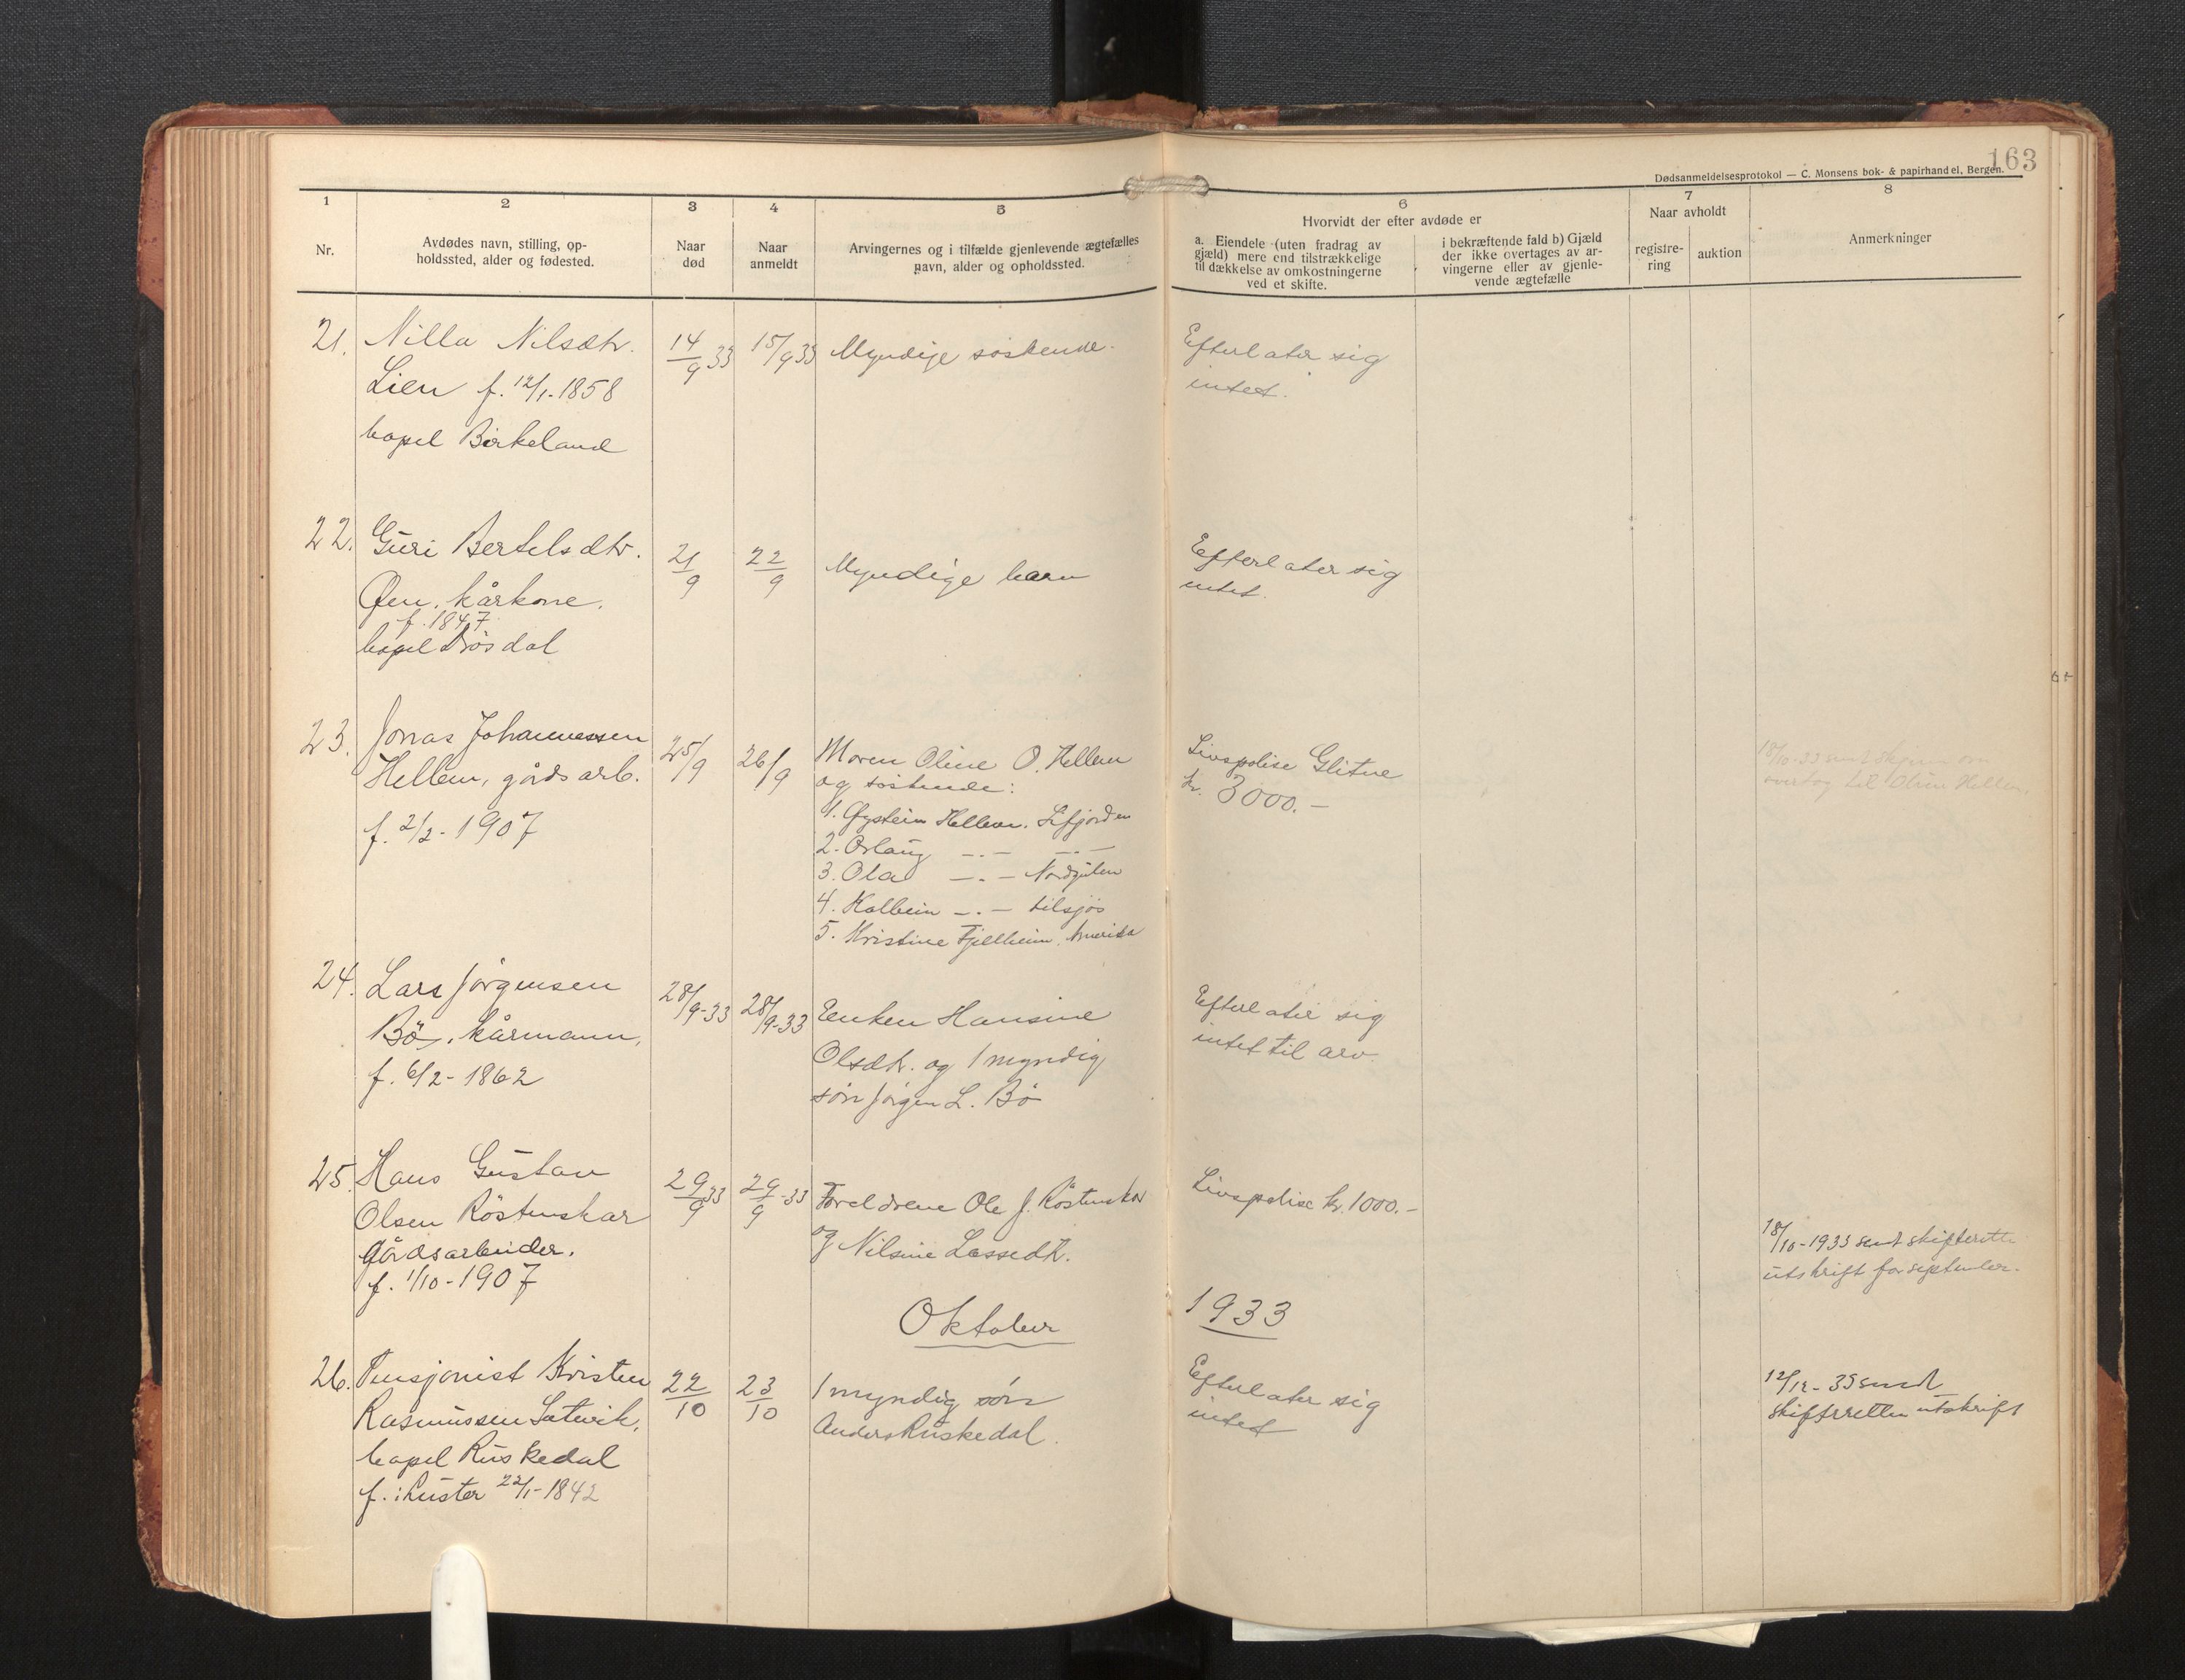 163
Dødsanmeldelsesprotokol — C. Monsens bok- & papirhandel, Bergen.
1 2 3 4 5 6 7 8
Nr.
Avdødes navn, stilling, op-
holdssted, alder og fødested.
Naar
død
Naar
anmeldt
Arvingernes og i tilfælde gjenlevende ægtefælles
navn, alder og opholdssted.
Hvorvidt der efter avdøde er
a. Eiendele (uten fradrag av
gjæld) mere end tilstrækkelige
til dækkelse av omkostningerne
ved et skifte.
i bekræftende fald b) Gjæld
der ikke overtages av ar-
vingerne eller av gjenle-
vende ægtefælle
Naar avholdt
registre-
ring
auktion
Anmerkninger
21. Nilla Nilsdtr.
Lien f. 12/1-1858
bopel Birkeland
14/9 33
15/9 33
Myndige søskende.
Efterlater sig
intet.
22. Guri Bertelsdtr.
Øen, kårkone.
f. 1847
bopel
21/9
22/9
Myndige barn
Efterlater sig
intet.
23. Jonas Johannessen
Hellem, gårdsarb.
f. 2/2-1907
25/9
26/9
Moren Oline O. Hellem
og søskende:
1. Øystein Hellem.
2. Oslaug —.— —.—
3. Ola —.—
4. Halbein —.— tilsjøs
5. Kristine Fjellheim, Amerika
Livspolise Glitne
kr. 3000.—
18/10-33 sendt skjema om
overtag. til Oline Hellem.
24. Lars Jörgensen
Bö, kårmann,
f. 6/2-1862
28/9-33
28/9-33
Enken Hansine
Olsdtr. og 1 myndig
sön Jörgen L. Bö
Efterlater sig
intet til arv.
25. Hans Gustav
Olsen Röstenskar
gårdsarbeider.
f. 1/10-1907
29/9 33
29/9-33
Foreldrene Ole J. Röstenskar
og Nilsine Lassedtr.
Livspolise kr. 1000.—
18/10-1933 sendt skifteretten
utskrift for september.
Oktober 1933
26. Pensjonist Kristen
Rasmussen
bopel Ruskedal
f. i Luster 22/1-1842
22/10
23/10
1 myndig sön
Anders Ruskedal.
Efterlater sig
intet
12/12-35 sendt
skifteretten utskrift